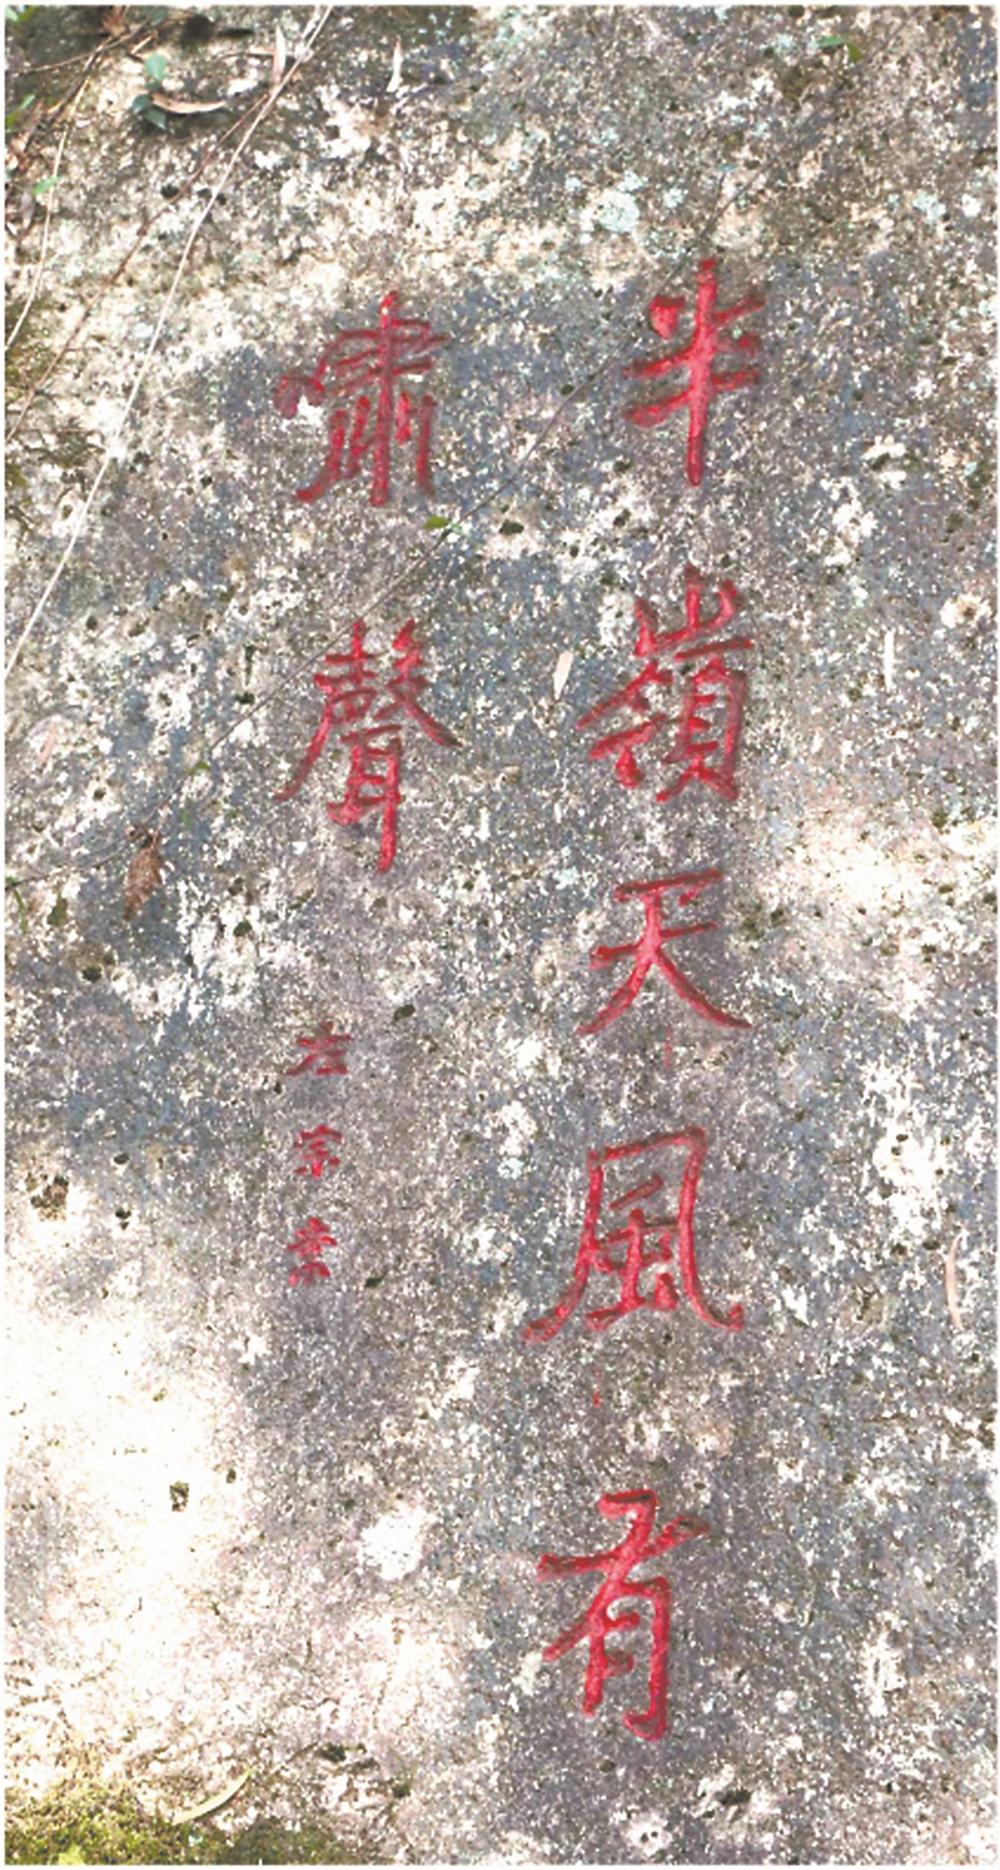 半嶺天風有
嘯聲
左宗棠